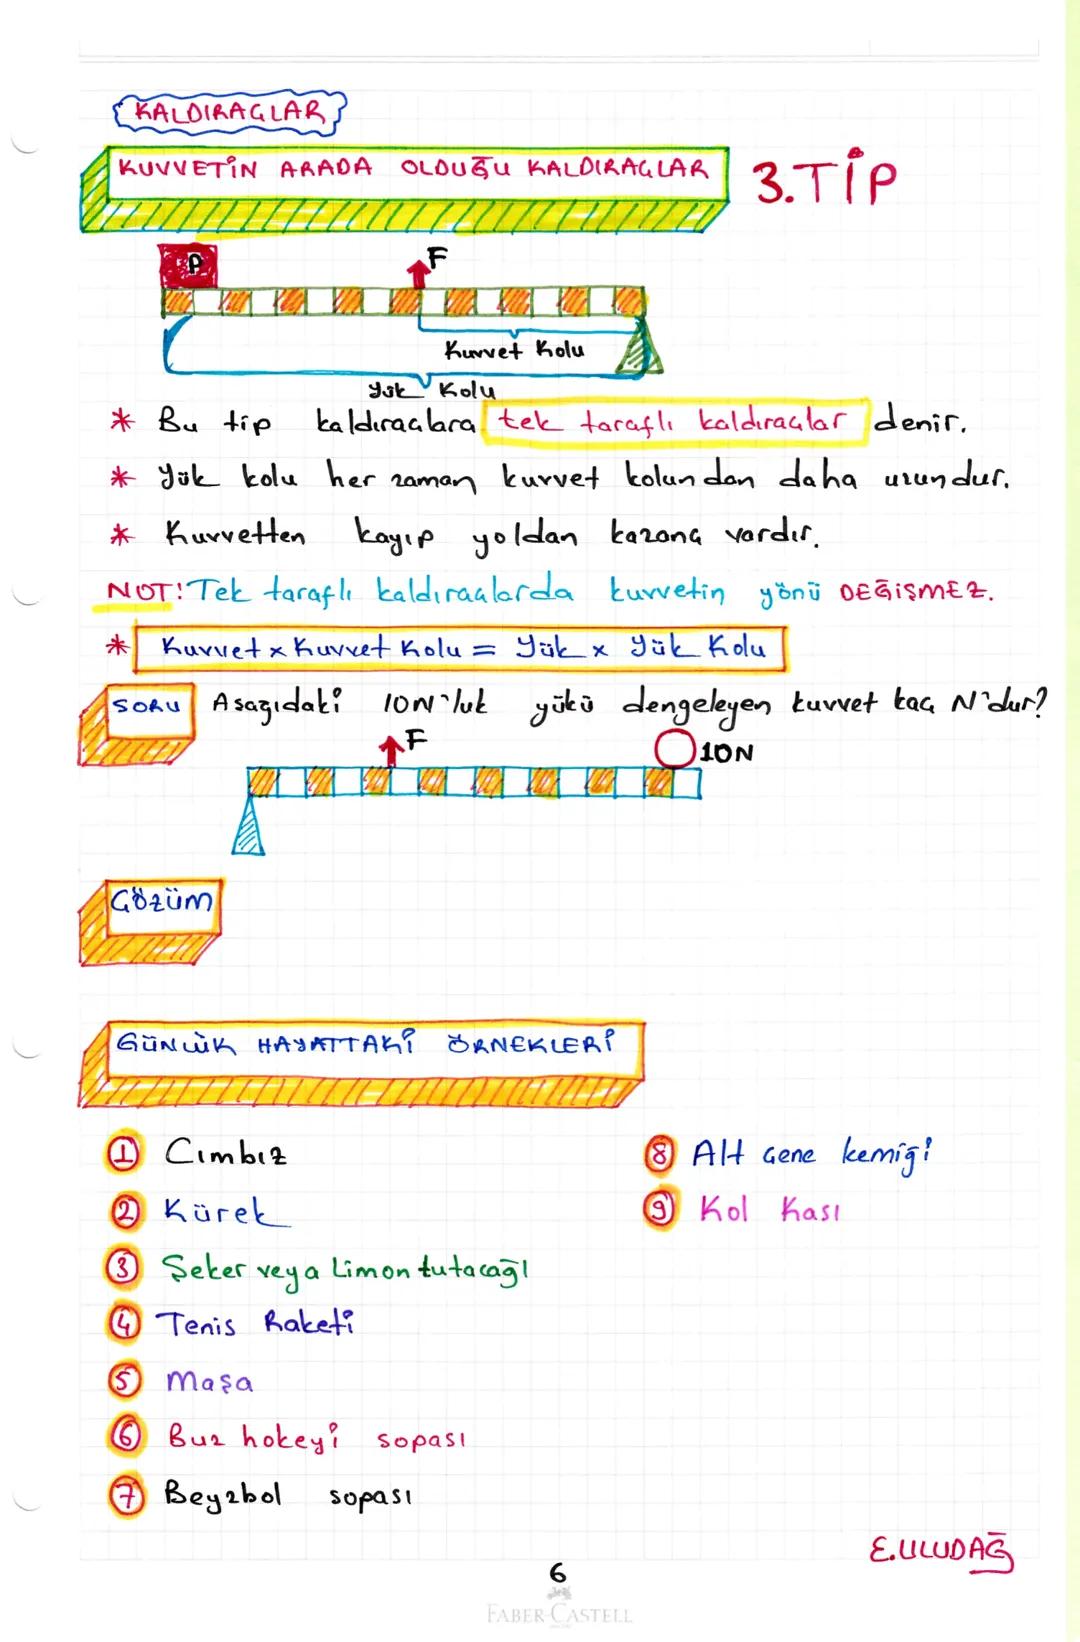 KALDIRAÇLAR
KUVVETİN ARADA OLDUĞU KALDIRAÇLAR
3.TİP
P
F
Kuvvet Kolu
Yük Kolu
* Bu tip kaldıraçlara tek taraflı kaldıraçlar denir.
* Yük kolu her zaman kuvvet kolundan daha uzundur.
* Kuvvetten kayıp yoldan kazanç vardır.
NOT! Tek taraflı kaldıraçlarda kuvvetin yönü DEĞİŞMEZ.
* Kuvvet x Kuvvet Kolu = Yük x Yük Kolu
SORU Aşağıdaki 10N'luk yükü dengeleyen kuvvet kaç N'dur?
F
10N
Çözüm
GÜNLÜK HAYATTAKİ ÖRNEKLERİ
1 Cımbız
2 Kürek
3 Şeker veya Limon tutacağı
4 Tenis Raketi
5 Maşa
6 Buz hokeyi sopası
7 Beyzbol sopası
8 Alt çene kemiği
9 Kol kası
E.ULUDAĞ
6
FABER-CASTELL